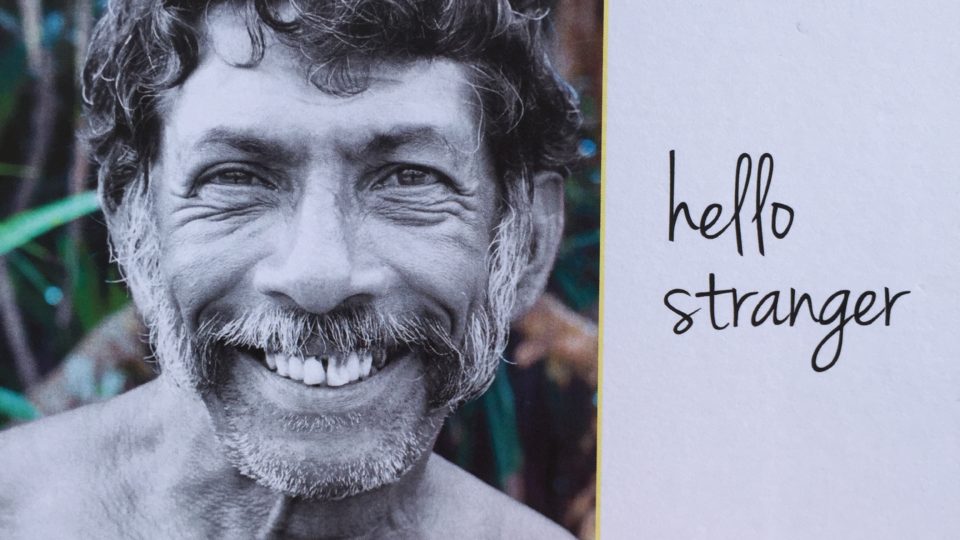 hello
stranger